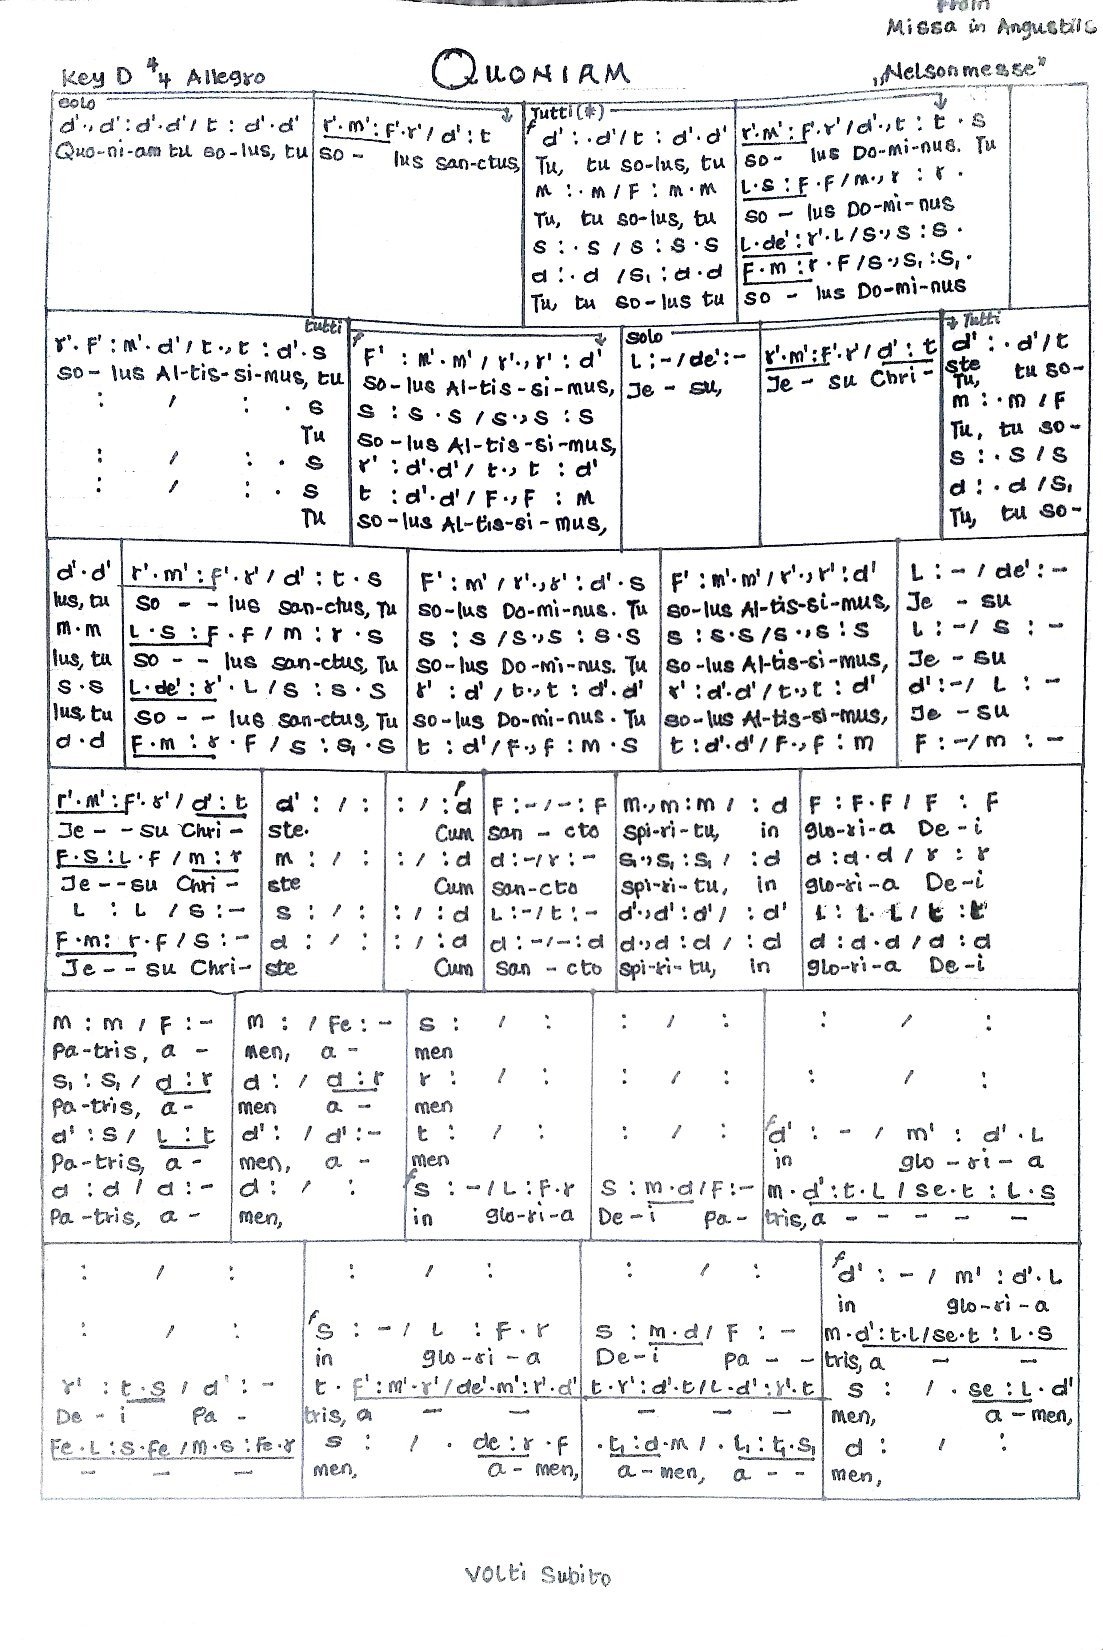 From
Missa in Angustiis
Key D 4/4 Allegro QUONIAM „Nelsonmesse"
solo Tutti (*)
d'., d' : d'. d' / t : d'. d' r'. m' : f'. r' / d' : t f d' : . d' / t : d'. d' r'. m' : f'. r' / d'., t : t . s
Quo-ni-am tu so-lus, tu so - lus san-ctus, Tu, tu so-lus, tu so - lus Do-mi-nus. Tu
m : . m / f : m . m L . s : f . f / m ., r : r .
Tu, tu so-lus, tu so - lus Do-mi-nus
s : . s / s : s . s L . de' : r' . L / s ., s : s .
d : . d / s₁ : d . d f . m : r . f / s ., s₁ : s₁ .
Tu, tu so-lus tu so - lus Do-mi-nus
tutti solo Tutti
r'. f' : m'. d' / t ., t : d'. s f f' : m'. m' / r'., r' : d' L : - / de' : - r'. m' : f'. r' / d' : t d' : . d' / t
so-lus Al-tis-si-mus, tu so-lus Al-tis-si-mus, Je - su, Je - su Chri- ste Tu, tu so-
: / : . s s : s . s / s ., s : s m : . m / f
Tu so-lus Al-tis-si-mus, Tu, tu so-
: / : . s r' : d'. d' / t ., t : d' s : . s / s
: / : . s t : d'. d' / f ., f : m d : . d / s₁
Tu so-lus Al-tis-si-mus, Tu, tu so-
d'. d' r'. m' : f'. r' / d' : t . s f' : m' / r'., r' : d'. s f' : m'. m' / r'., r' : d' L : - / de' : -
lus, tu so - - lus san-ctus, Tu so-lus Do-mi-nus. Tu so-lus Al-tis-si-mus, Je - su
m . m L . s : f . f / m : r . s s : s / s ., s : s . s s : s . s / s ., s : s L : - / s : -
lus, tu so - - lus san-ctus, Tu so-lus Do-mi-nus. Tu so-lus Al-tis-si-mus, Je - su
s . s L . de' : r' . L / s : s . s r' : d' / t ., t : d'. d' r' : d'. d' / t ., t : d' d' : - / L : -
lus, tu so - - lus san-ctus, Tu so-lus Do-mi-nus. Tu so-lus Al-tis-si-mus, Je - su
d . d f . m : r . f / s : s₁ . s t : d' / f ., f : m . s t : d'. d' / f ., f : m f : - / m : -
r'. m' : f'. r' / d' : t d' : / : : / : d f : - / - : f m ., m : m / : d f : f . f / f : f
Je - - su Chri- ste. Cum san - cto spi-ri-tu, in glo-ri-a De-i
f . s : L . f / m : r m : / : : / : d d : - / r : - s₁ ., s₁ : s₁ / : d d : d . d / r : r
Je - - su Chri- ste Cum san-cto spi-ri-tu, in glo-ri-a De-i
L : L / s : - s : / : : / : d L : - / t : - d'., d' : d' / : d' L : L . L / t : t
f . m : r . f / s : - d : / : : / : d d : - / - : d d ., d : d / : d d : d . d / d : d
Je - - su Chri- ste Cum san - cto spi-ri-tu, in glo-ri-a De-i
m : m / f : - m : / fe : - s : / : : / : : / :
Pa-tris, a - men, a - men
s₁ : s₁ / d : r d : / d : r r : / : : / : : / :
Pa-tris, a- men a - men
d' : s / L : t d' : / d' : - t : / : : / : f d' : - / m' : d'. L
Pa-tris, a - men, a - men in glo-ri-a
d : d / d : - d : / : f s : - / L : f . r s : m . d / f : - m . d' : t . L / se . t : L . s
Pa-tris, a - men, in glo-ri-a De-i pa- tris, a - - - - -
: / : : / : : / : f d' : - / m' : d'. L
in glo-ri-a
: / : f s : - / L : f . r s : m . d / f : - m . d' : t . L / se . t : L . s
in glo-ri-a De-i pa - - tris, a - -
r' : t . s / d' : - t . f' : m'. r' / de'. m' : r'. d' t . r' : d'. t / L . d' : r'. t s : / . se : L . d'
De - i pa - tris, a - - - - - men, a-men,
fe . L : s . fe / m . s : fe . r s : / . de : r . f . t₁ : d . m / . L₁ : t₁ . s₁ d : / :
- - - men, a-men, a-men, a - - men,
Volti Subito